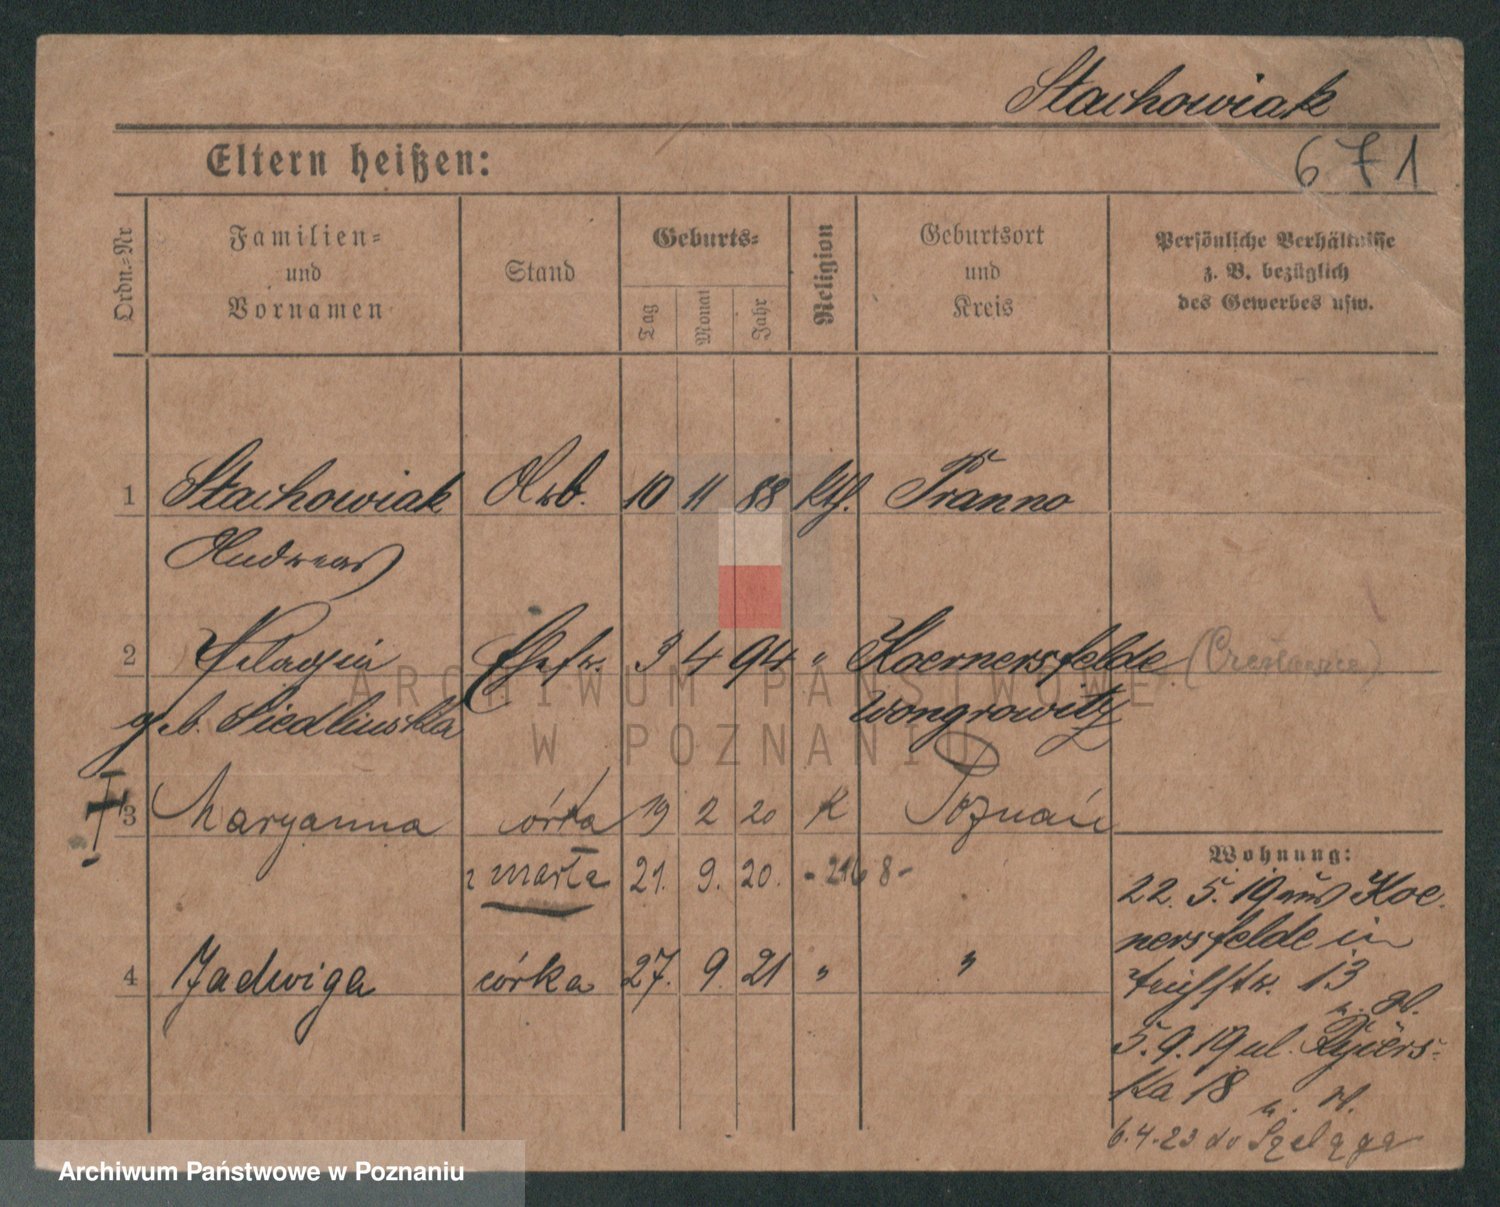 Stachowiak
671
Eltern heißen:
Ordn.-Nr
Familien- und Vornamen
Stand
Geburts-
Tag Monat Jahr
Religion
Geburtsort und Kreis
Persönliche Verhältnisse z. B. bezüglich des Gewerbes usw.
1 Stachowiak Arb. 10 11 88 kth. Pranno
Andreas
2 Pelagia Ehefr. 3 4 94 " Koernersfelde (Czesławice)
geb. Siedlinska Wongrowitz
3 Maryanna córka 19 2 20 K Poznań
zmarła 21. 9. 20. - 2168-
Wohnung:
22. 5. 19 aus Koe-
nersfelde in
13
4 Jadwiga córka 27. 9. 21 " "
5. 9. 19 ul.
ka 18
6.4.23 do Szeląga
ARCHIWUM PAŃSTWOWE
W POZNANIU
Archiwum Państwowe w Poznaniu